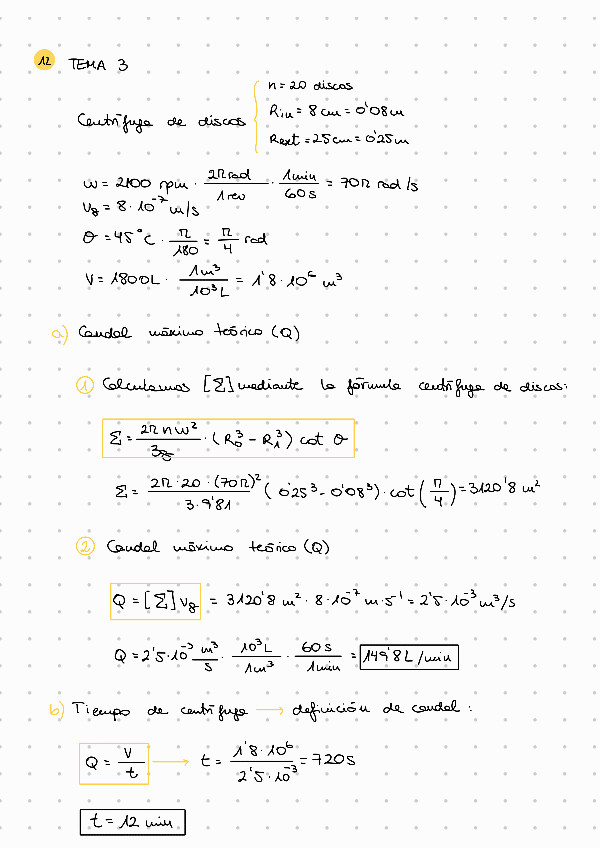 12 TEMA 3
n = 20 discos
Centrífuga de discos { Rin = 8 cm = 0'08 m
Rext = 25 cm = 0'25 m
w = 2100 rpm · 2π rad / 1 rev · 1 min / 60 s = 70π rad/s
vg = 8 · 10⁻⁷ m/s
θ = 45° C · π / 180 = π / 4 rad
V = 1800 L · 1 m³ / 10³ L = 1'8 · 10⁶ m³
a) Caudal máximo teórico (Q)
1 Calculamos [Σ] mediante la fórmula centrífuga de discos:
Σ = 2π n w² / 3g · (R₀³ - R₁³) cot θ
Σ = 2π · 20 · (70π)² / 3 · 9'81 (0'25³ - 0'08³) · cot (π / 4) = 3120'8 m²
2 Caudal máximo teórico (Q)
Q = [Σ] vg = 3120'8 m² · 8 · 10⁻⁷ m · s⁻¹ = 2'5 · 10⁻³ m³/s
Q = 2'5 · 10⁻³ m³ / s · 10³ L / 1 m³ · 60 s / 1 min = 149'8 L/min
b) Tiempo de centrífuga → definición de caudal :
Q = V / t → t = 1'8 · 10⁶ / 2'5 · 10⁻³ = 720 s
t = 12 min